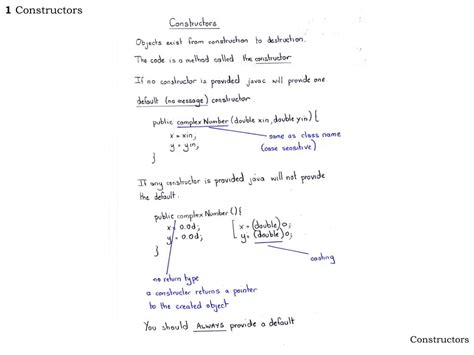 1 Constructors
Constructors
Objects exist from construction to destruction.
The code is a method called the constructor
If no constructor is provided javac will provide one
default (no message) constructor
public complex Number (double xin, double yin) {
x = xin;
y = yin;
}
same as class name
(case sensitive)
If any constructor is provided java will not provide
the default.
public complex Number () {
x = 0.0d; [ x = (double) 0;
y = 0.0d; [ y = (double) 0;
}
casting
no return type
a constructor returns a pointer
to the created object
You should ALWAYS provide a default
Constructors